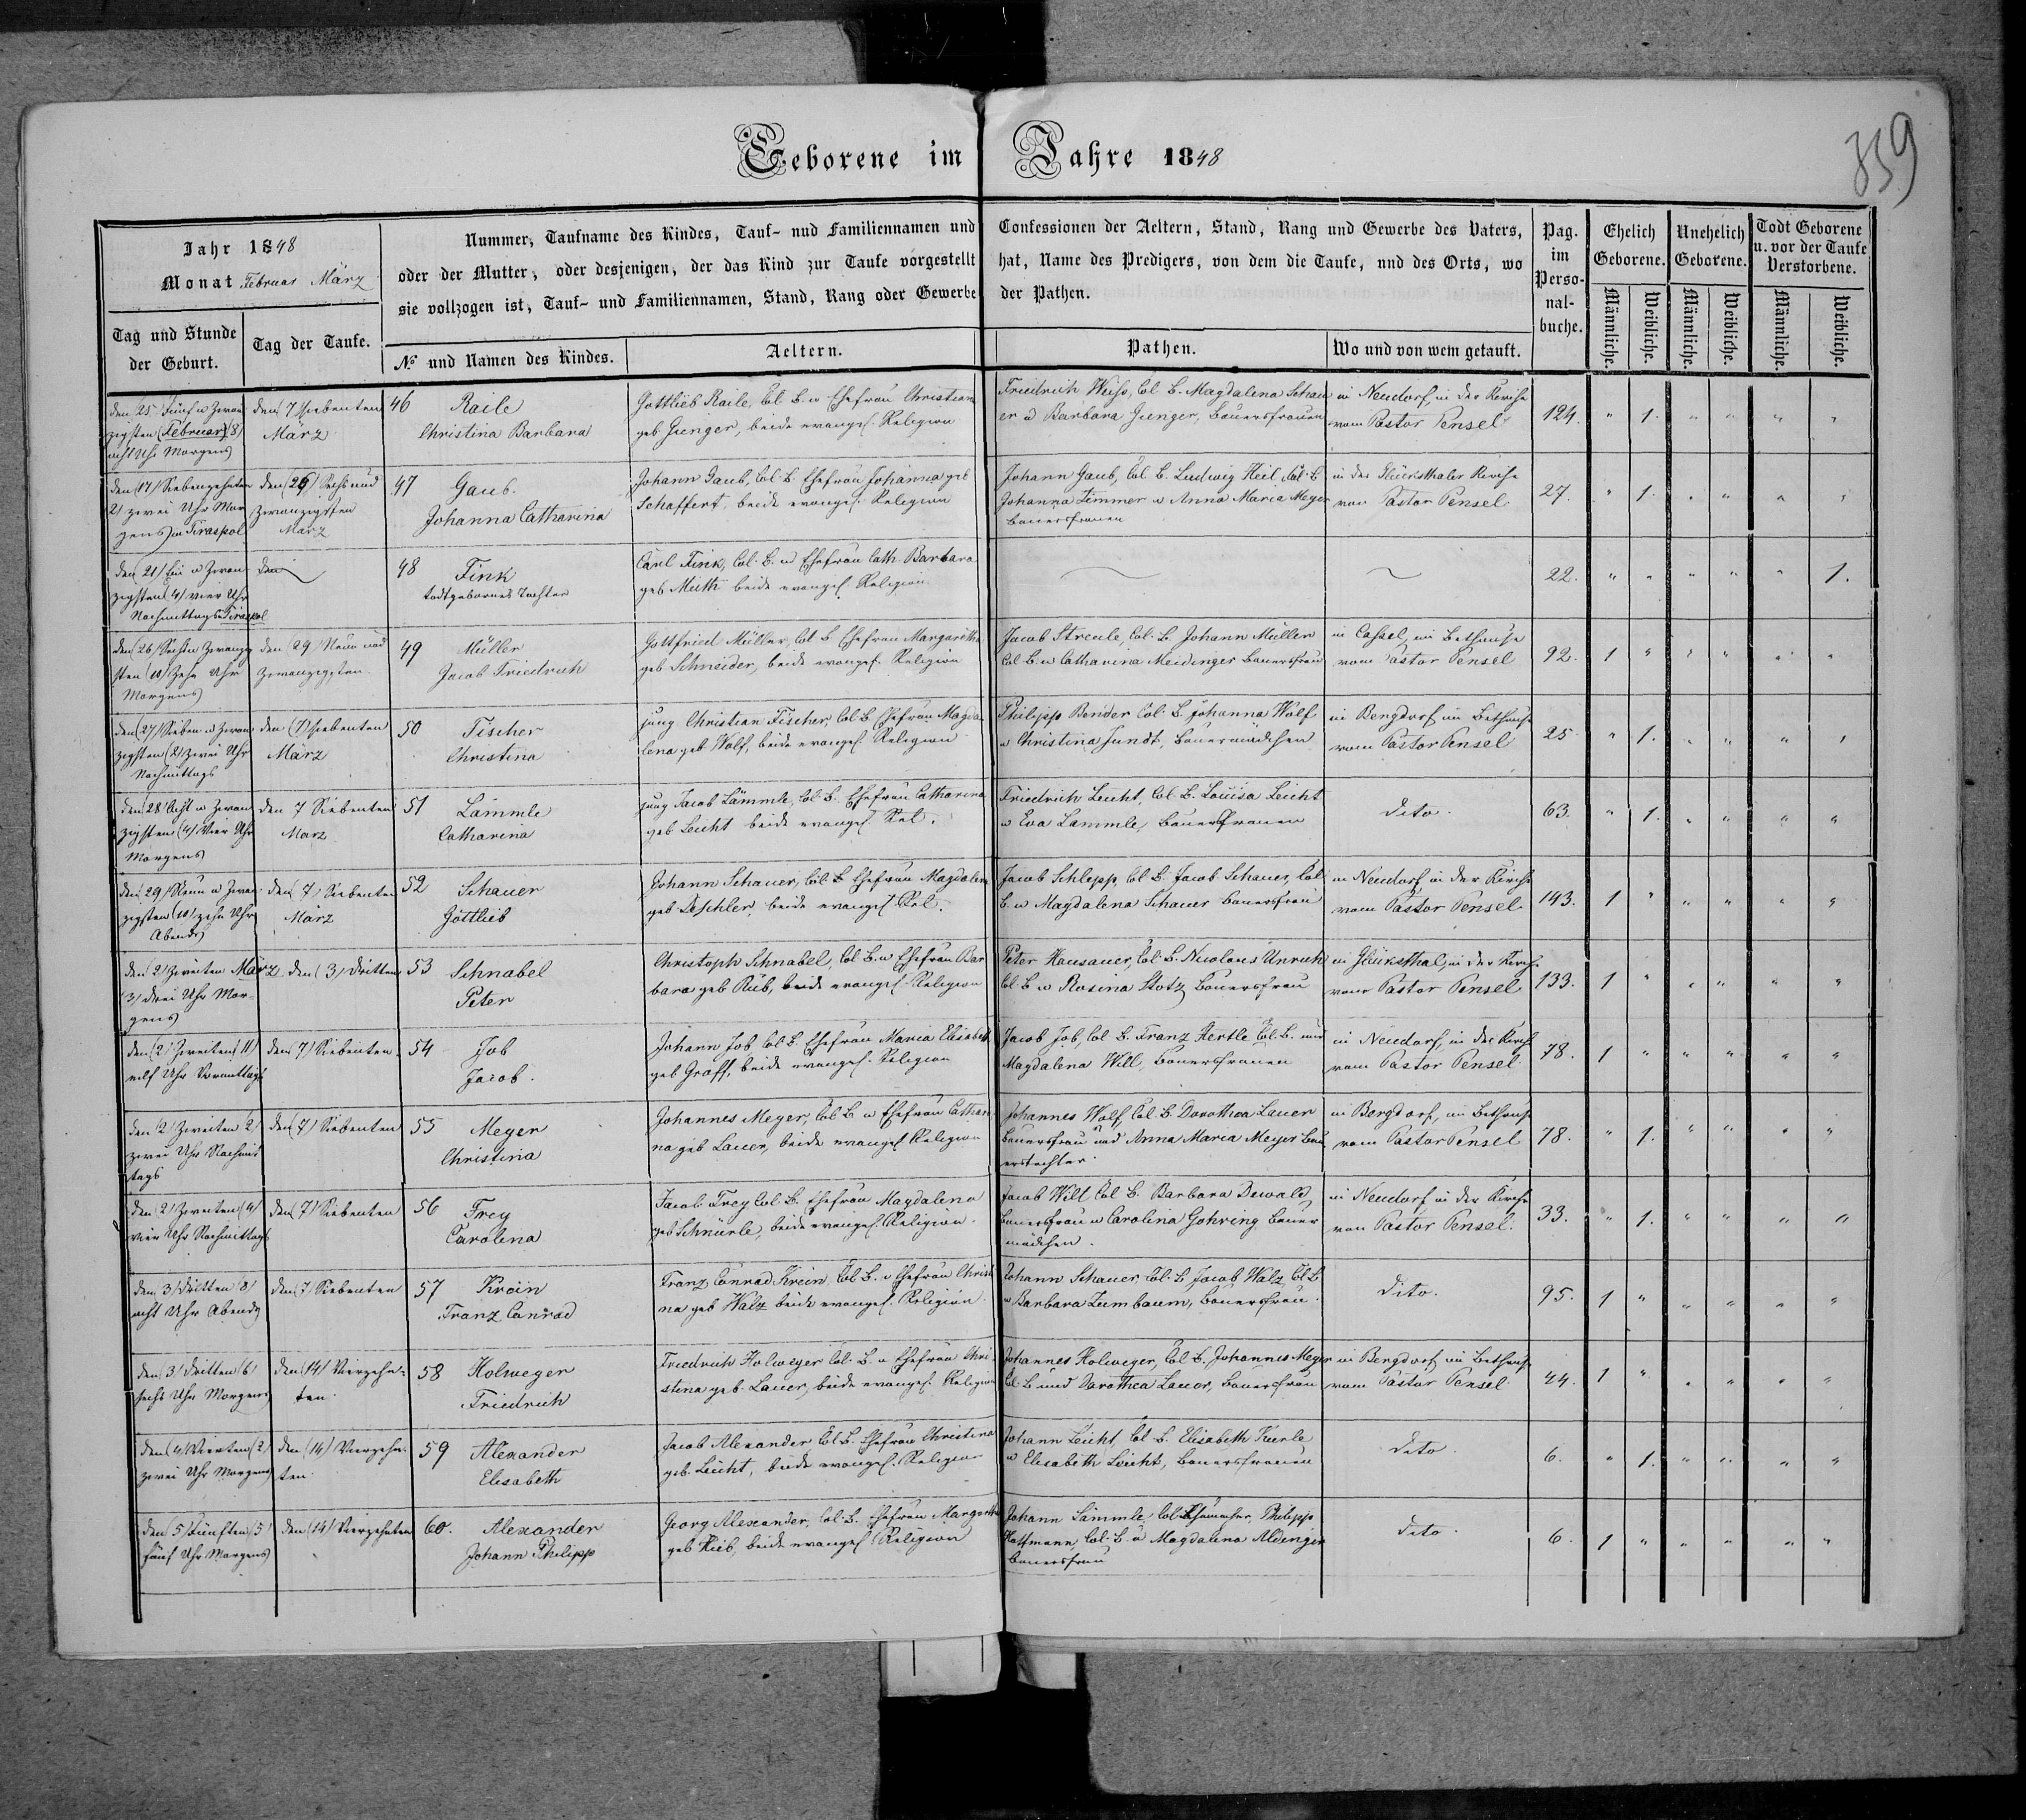 Geborene im Jahre 1848
359
Jahr 1848
Monat Februar März
Tag und Stunde
der Geburt.
Tag der Taufe.
Nummer, Taufname des Kindes, Tauf- nud Familiennamen und
Confessionen der Aeltern, Stand, Rang und Gewerbe des Vaters,
oder der Mutter, oder desjenigen, der das Kind zur Taufe vorgestellt
hat, Name des Predigers, von dem die Taufe, und des Orts, wo
sie vollzogen ist, Tauf- und Familiennamen, Stand, Rang oder Gewerbe
der Pathen.
No und Namen des Kindes.
Aeltern.
Pathen.
Wo und von wem getauft.
Pag.
im
Perso-
nal-
buche.
Ehelich
Geborene.
Unehelich
Geborene.
Todt Geborene
u. vor der Taufe
Verstorbene.
Männliche.
Weibliche.
Männliche.
Weibliche.
Männliche.
Weibliche.
den 25 Fünf u Zwan
zigsten (Februar) (8)
acht Uhr Morgens
den 7 Siebenten
März
46 Raile
Christina Barbara
Gottlieb Raile, Col. B. u Ehefrau Christian
geb Junger, beide evangel. Religion
Friedrich Weiss, Col B. Magdalena Schau
er u Barbara Junger, Bauersfrauen
in Neudorf, in der Kirche
vom Pastor Pensel
124. " 1. " " " "
den (17) Siebenzehnten
2) zwei Uhr Mor
gens) in Tiraspol
den (26) Sechs und
zwanzigsten
März
47 Gaub.
Johanna Catharina
Johann Gaub, Col. B. Ehefrau Johanna geb
Schaffert, beide evangel. Religion
Johann Gaub, Col. B. Ludwig Heil, Col. B
Johanna Zimmer u Anna Maria Meyer
Bauersfrauen
in der Glücksthaler Kirche
von Pastor Pensel
27. " 1. " " " "
den 21) Ein u Zwan
zigsten (4) vier Uhr
Nachmittags Tiraspol
den
48 Fink
todtgebornes Tochter
Carl Fink, Col. B. u Ehefrau Cath. Barbara
geb Muth beide evangel. Religion
22. " " " " " 1.
den 26) Sechs Zwanzig
sten (10) Zehn Uhr
Morgens
den 29) Neun und
Zwanzigsten.
49 Müller
Jacob Friedrich
Gottfried Müller, Col B Ehefrau Margaretha
geb Schneider, beide evangel. Religion
Jacob Streule, Col. B. Johann Müller
Col B. u Catharina Meidinger Bauersfrau
in Cassel, im Bethause
vom Pastor Pensel
92. 1 " " " " "
den (27) Sieben u Zwan
zigsten (2) zwei Uhr
Nachmittags
den (7) Siebenten
März
50 Fischer
Christina
jung Christian Fischer, Col B Ehefrau Magda
lena geb Wolf, beide evangel. Religion
Philipp Bender Col. B. Johanna Wolf
u Christina Jundt, Bauermädchen
in Bergdorf im Bethause
vom Pastor Pensel
25 " 1. " " " "
den 28 Acht u Zwan
zigsten (4) Vier Uhr
Morgens
den 7 Siebenten
März
51 Lämmle
Catharina
jung Jacob Lämmle, Col. B. Ehefrau Catharina
geb Leicht beide evangel. Rel.
Friedrich Leicht, Col. B. Louisa Leicht
u Eva Lammle, Bauersfrauen
dito.
63. " 1. " " " "
den 29) Neun u Zwan
zigsten (10) zehn Uhr
Abends
den 7) Siebenten
März
52 Schauer
Gottlieb
Johann Schauer, Col. B Ehefrau Magdalena
geb Deschler, beide evangel. Rel.
Jacob Schlepp, Col B. Jacob Schauer, Col
B. u Magdalena Schauer Bauersfrau
in Neudorf, in der Kirche
vom Pastor Pensel
143. 1 " " " " "
den (2) Zweiten März
(3) drei Uhr Mor-
gens
den (3) Dritten
53 Schnabel
Peter
Christoph Schnabel, Col B. u Ehefrau Bar
bara geb Rüb, beide evangel. Religion
Peter Hausauer, Col. B. Nicolaus Unruh
Col. B u Rosina Stotz Bauersfrau
in Glücksthal, in der Kirche
vom Pastor Pensel
133. 1 " " " " "
den (2) Zweiten (11)
eilf Uhr Vormittags
den (7) Siebenten.
54 Job
Jacob.
Johann Job Col B. Ehefrau Maria Elisabeth
geb Graff, beide evangel. Religion
Jacob Job, Col B. Franz Hertle Col. B. und
Magdalena Will, Bauersfrauen
in Neudorf, in der Kirche
vom Pastor Pensel
78. 1 " " " " "
den (2) Zweiten (2)
zwei Uhr Nachmit
tags
den (7) Siebenten
55 Meyer
Christina
Johannes Meyer, Col B u Ehefrau Cathari
na geb Lauer, beide evangel Religion
Johannes Wolf, Col B Dorothea Lauer
Bauersfrau und Anna Maria Meyer Bau
erstochter.
in Bergdorf, im Bethause
vom Pastor Pensel
78. " 1. " " " "
den (2) Zweiten (4)
vier Uhr Nachmittags
den (7) Siebenten
56 Frey
Carolina
Jacob Frey Col. B. Ehefrau Magdalena
geb Schnürle, beide evangel. Religion.
Jacob Will Col B. Barbara Dewald
Bauersfrau u Carolina Gohring Bauer
mädchen.
in Neudorf in der Kirche
von Pastor Pensel.
33. " 1. " " " "
den (3) dritten (8)
acht Uhr Abends
den (7) Siebenten
57 Krein
Franz Conrad
Franz Conrad Krein, Col B. u Ehefrau Christi
na geb Walz beide evangel. Religion
Johann Schauer, Col. B. Jacob Walz, Col B
u Barbara Zumbaum, Bauersfrau.
dito.
95. 1 " " " " "
den (3) dritten (6)
sechs Uhr Morgens
den (14) Vierzehn-
ten.
58 Holweger
Friedrich
Friedrich Holweger Col. B. u Ehefrau Chri
stina geb. Lauer, beide evangel. Religion
Johannes Holweger, Col B. Johannes Meyer
Col. B und Dorothea Lauer, Bauersfrau
in Bergdorf im Bethause
vom Pastor Pensel
44. 1 " " " " "
den (4) Vierten (2)
zwei Uhr Morgens
den (14) Vierzehn
ten.
59 Alexander
Elisabeth
Jacob Alexander Col B. Ehefrau Christina
geb. Leicht, beide evangel. Religion
Johann Leicht, Col B. Elisabeth Kurle
u Elisabeth Leicht, Bauersfrauen
dito.
6. " 1. " " " "
den (5) Fünften (5)
fünf Uhr Morgens
den (14) Vierzehnten
60. Alexander
Johann Philipp
Georg Alexander, Col. B. Ehefrau Margaretha
geb Rieb, beide evangel Religion
Johann Lämmle, Philipp
Hoffmann, Col. B. u Magdalena Aldinger
Bauersfrau
dito.
6. 1 " " " " "